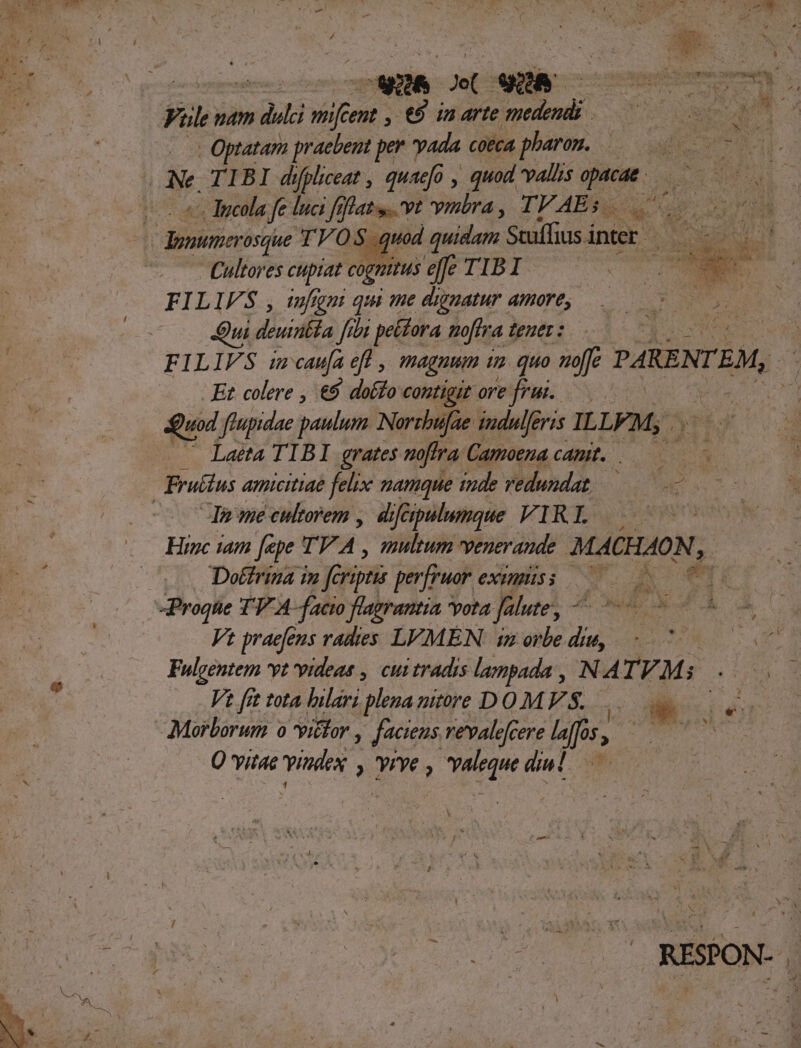 )o(
Vtile nam dulci miſcent , & in arte medendi
Optatam praebent per vada coeca pharon.
Ne TIBI diſpliceat , quaeſo , quod vallis opacae
Incola ſe luci ſiſtat , vt vmbra , TVAE ;
Innumerosque TVOS quod quidam Stuſſius inter
Cultores cupiat cognitus eſſe TIBI
FILIVS , inſigni qui me dignatur amore,
Qui deuincta ſibi pectora noſtra tenet :
FILIVS in cauſa eſt , magnum in quo noſſe PARENTEM,
Et colere , & docto contigit ore frui.
Quod ſtupidae paulum Northuſae indulſeris ILLVM ;
Laeta TIBI grates noſtra Camoena canit.
Fructus amicitiae felix namque inde redundat
In me cultorem , diſcipulumque VIRI.
Hinc iam ſepe TVA , multum venerande MACHAON ,
Doctrina in ſcriptis perfruor eximiis ;
Proque TVA facio flagrantia vota ſalute ,
Vt praeſens radies LVMEN in orbe diu,
Fulgentem vt videas , cui tradis lampada , NATVM ;
Vt ſit tota hilari plena nitore DOMVS.
Morborum o victor , faciens revaleſcere laſſos ,
O vitae vindex , vive , valeque diu!
RESPON-